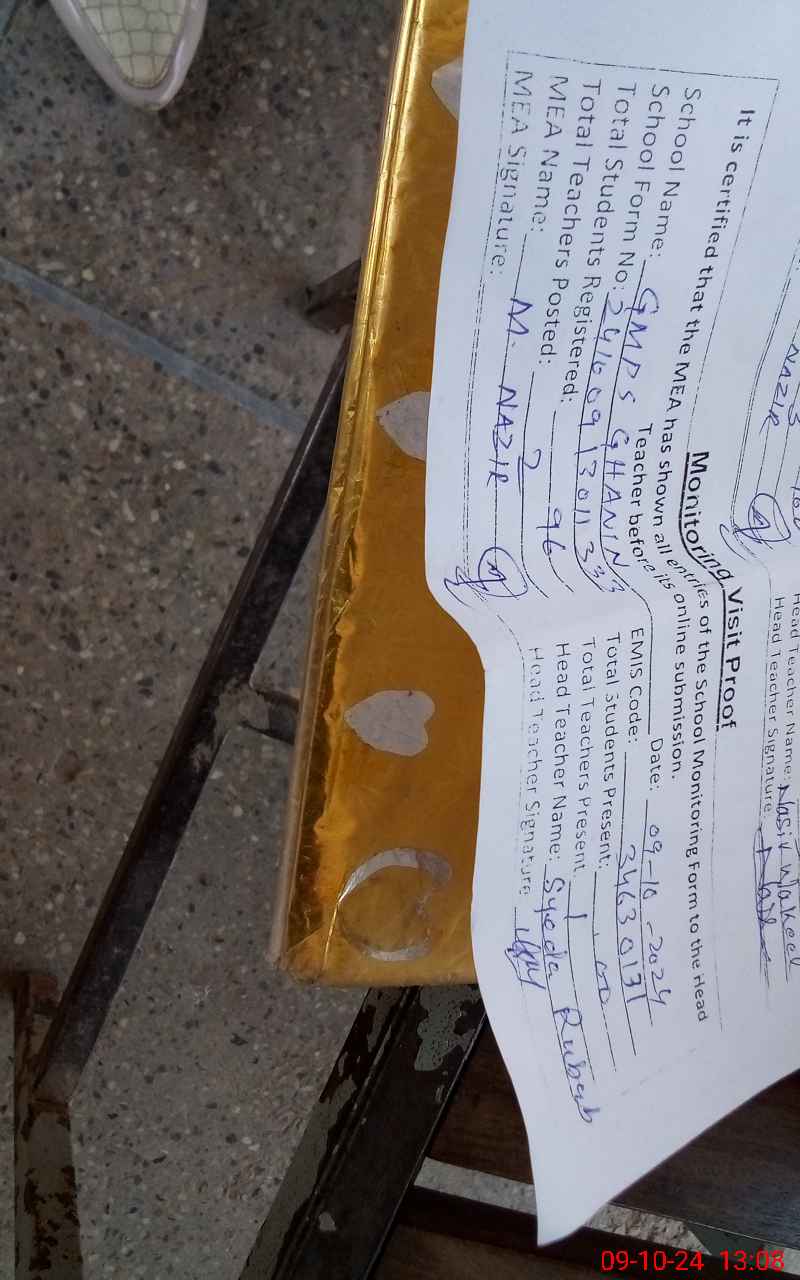 NAZIR
Head Teacher Name: Nasir Wakeel
Head Teacher Signature:
Monitoring Visit Proof
It is certified that the MEA has shown all entries of the School Monitoring Form to the Head
Teacher before its online submission.
Date: 09-10-2024
School Name: GMPS GHANIN EMIS Code: 34630131
School Form No: Total Students Present:
Total Students Registered: 96 Total Teachers Present: 1
Total Teachers Posted: 2 Head Teacher Name: Syeda Rubab
MEA Name: M. NAZIR Head Teacher Signature
MEA Signature:
09-10-24 13:08